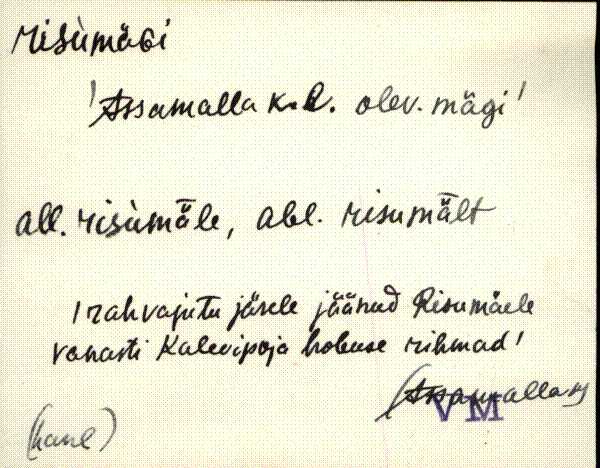 risùmäGi
'Assamalla k.l. olev. mägi'
all. risùmǟle, abl. risumǟlt
'rahvajutu järele jäänud Risumäele
vanasti Kalevipoja hobuse rihmad'
(Assamallas)
VM
(hanl)